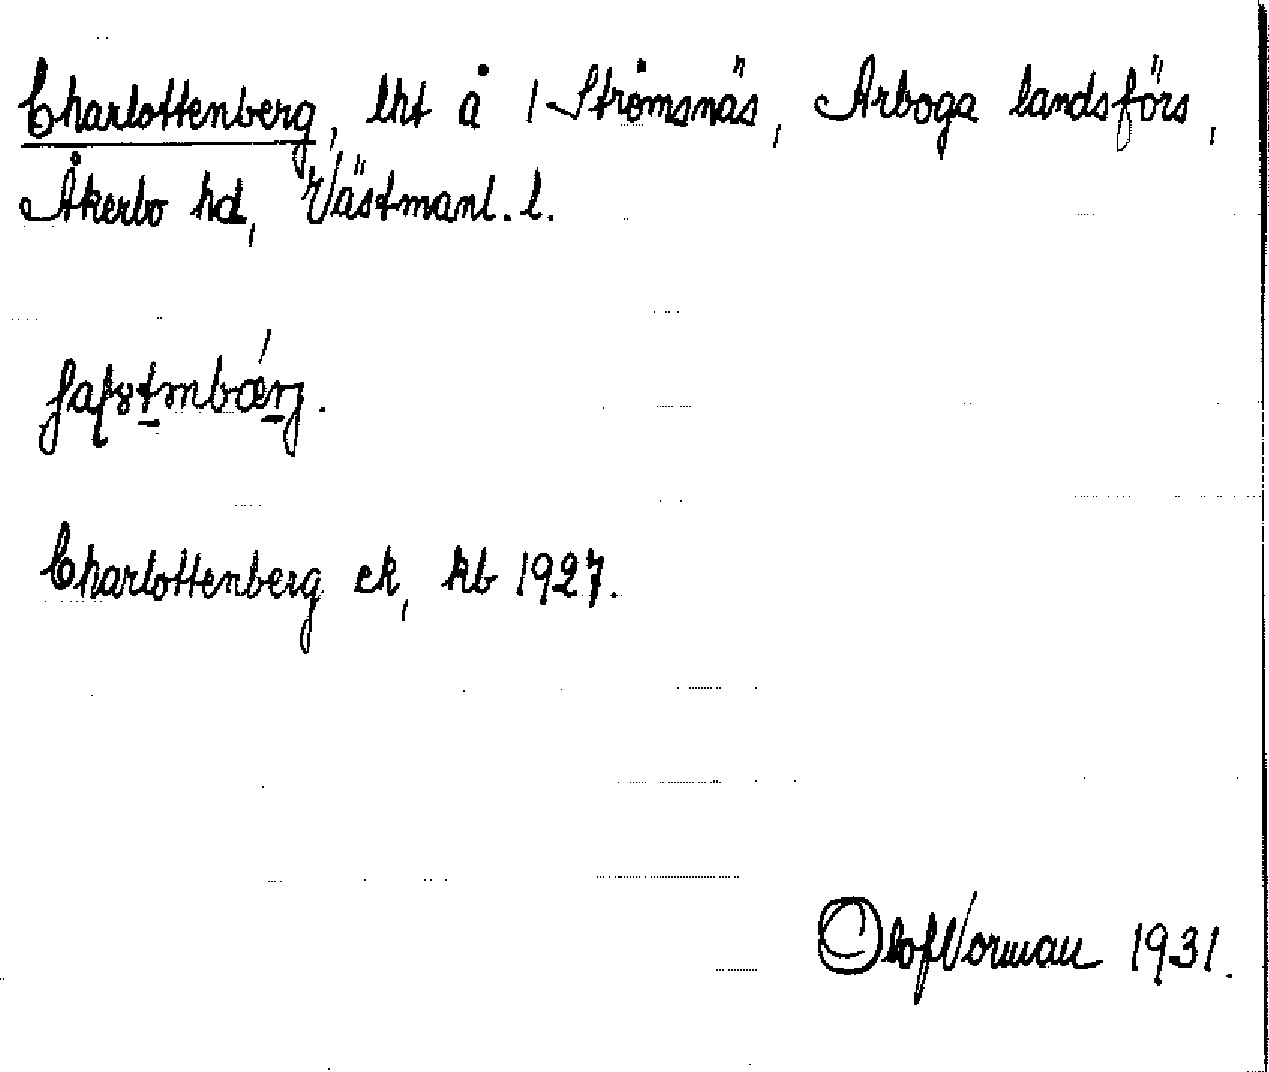 Charlottenberg, lht å 1 Strömsnäs, Arboga landsförs,
Åkerbo hd, Västmanl. l.
Charlottenberg ek, kb 1927.
Olof Norman 1931.